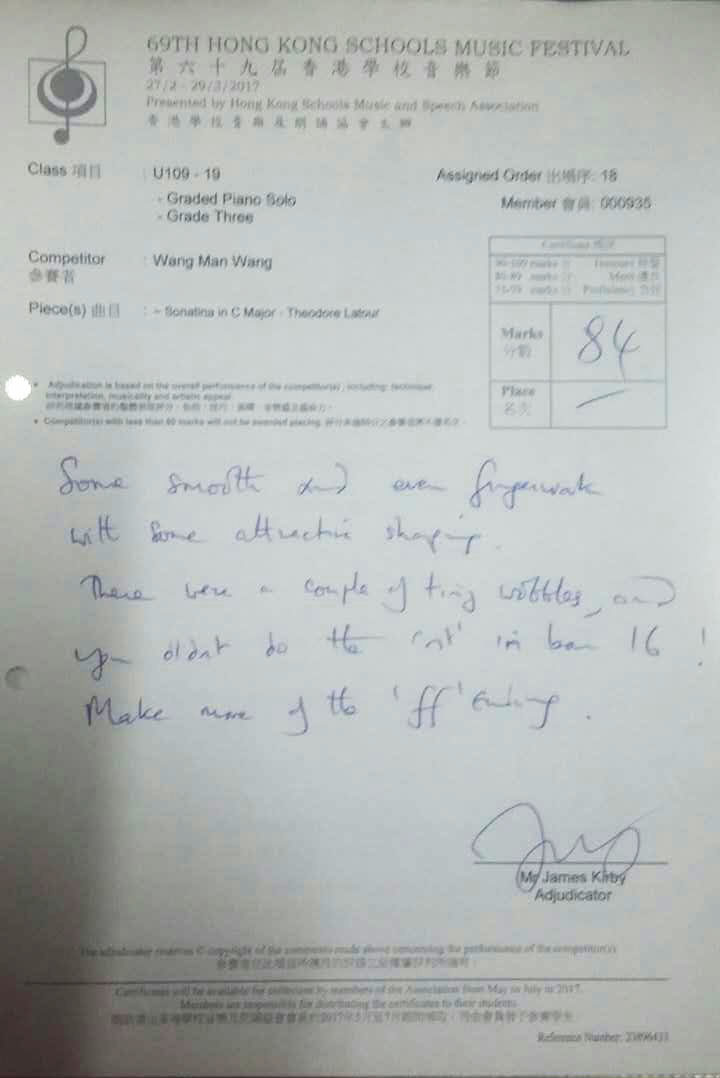 69TH HONG KONG SCHOOLS MUSIC FESTIVAL
第六十九屆香港學校音樂節
27/2 - 29/3/2017
Presented by Hong Kong Schools Music and Speech Association
香港學校音樂及朗誦協會主辦
Class 項目 : U109 - 19
Assigned Order 出場序: 18
- Graded Piano Solo
Member 會員: 000935
- Grade Three
Competitor : Wang Man Wang
參賽者
Piece(s) 曲目 : ~ Sonatina in C Major - Theodore Latour
Certificate
90-100 marks 分 Honours
80-89 marks 分 Merit
75-79 marks 分 Proficiency
Marks 84
分數
Place —
名次
• Adjudication is based on the overall performance of the competitor(s), including: technique,
interpretation, musicality and artistic appeal.
• Competitor(s) with less than 80 marks will not be awarded placing.
Some smooth and even fingerwork
with some attractive shaping.
There were a couple of tiny wobbles, and
you didn't do the in bar 16 !
Make more of the 'ff' ending.
Mr James Kirby
Adjudicator
The adjudicator reserves © copyright of the comments made above concerning the performance of the competitor(s)
Certificates will be available for collection by members of the Association from May to July in 2017.
Members are responsible for distributing the certificates to their students.
Reference Number: 23896433